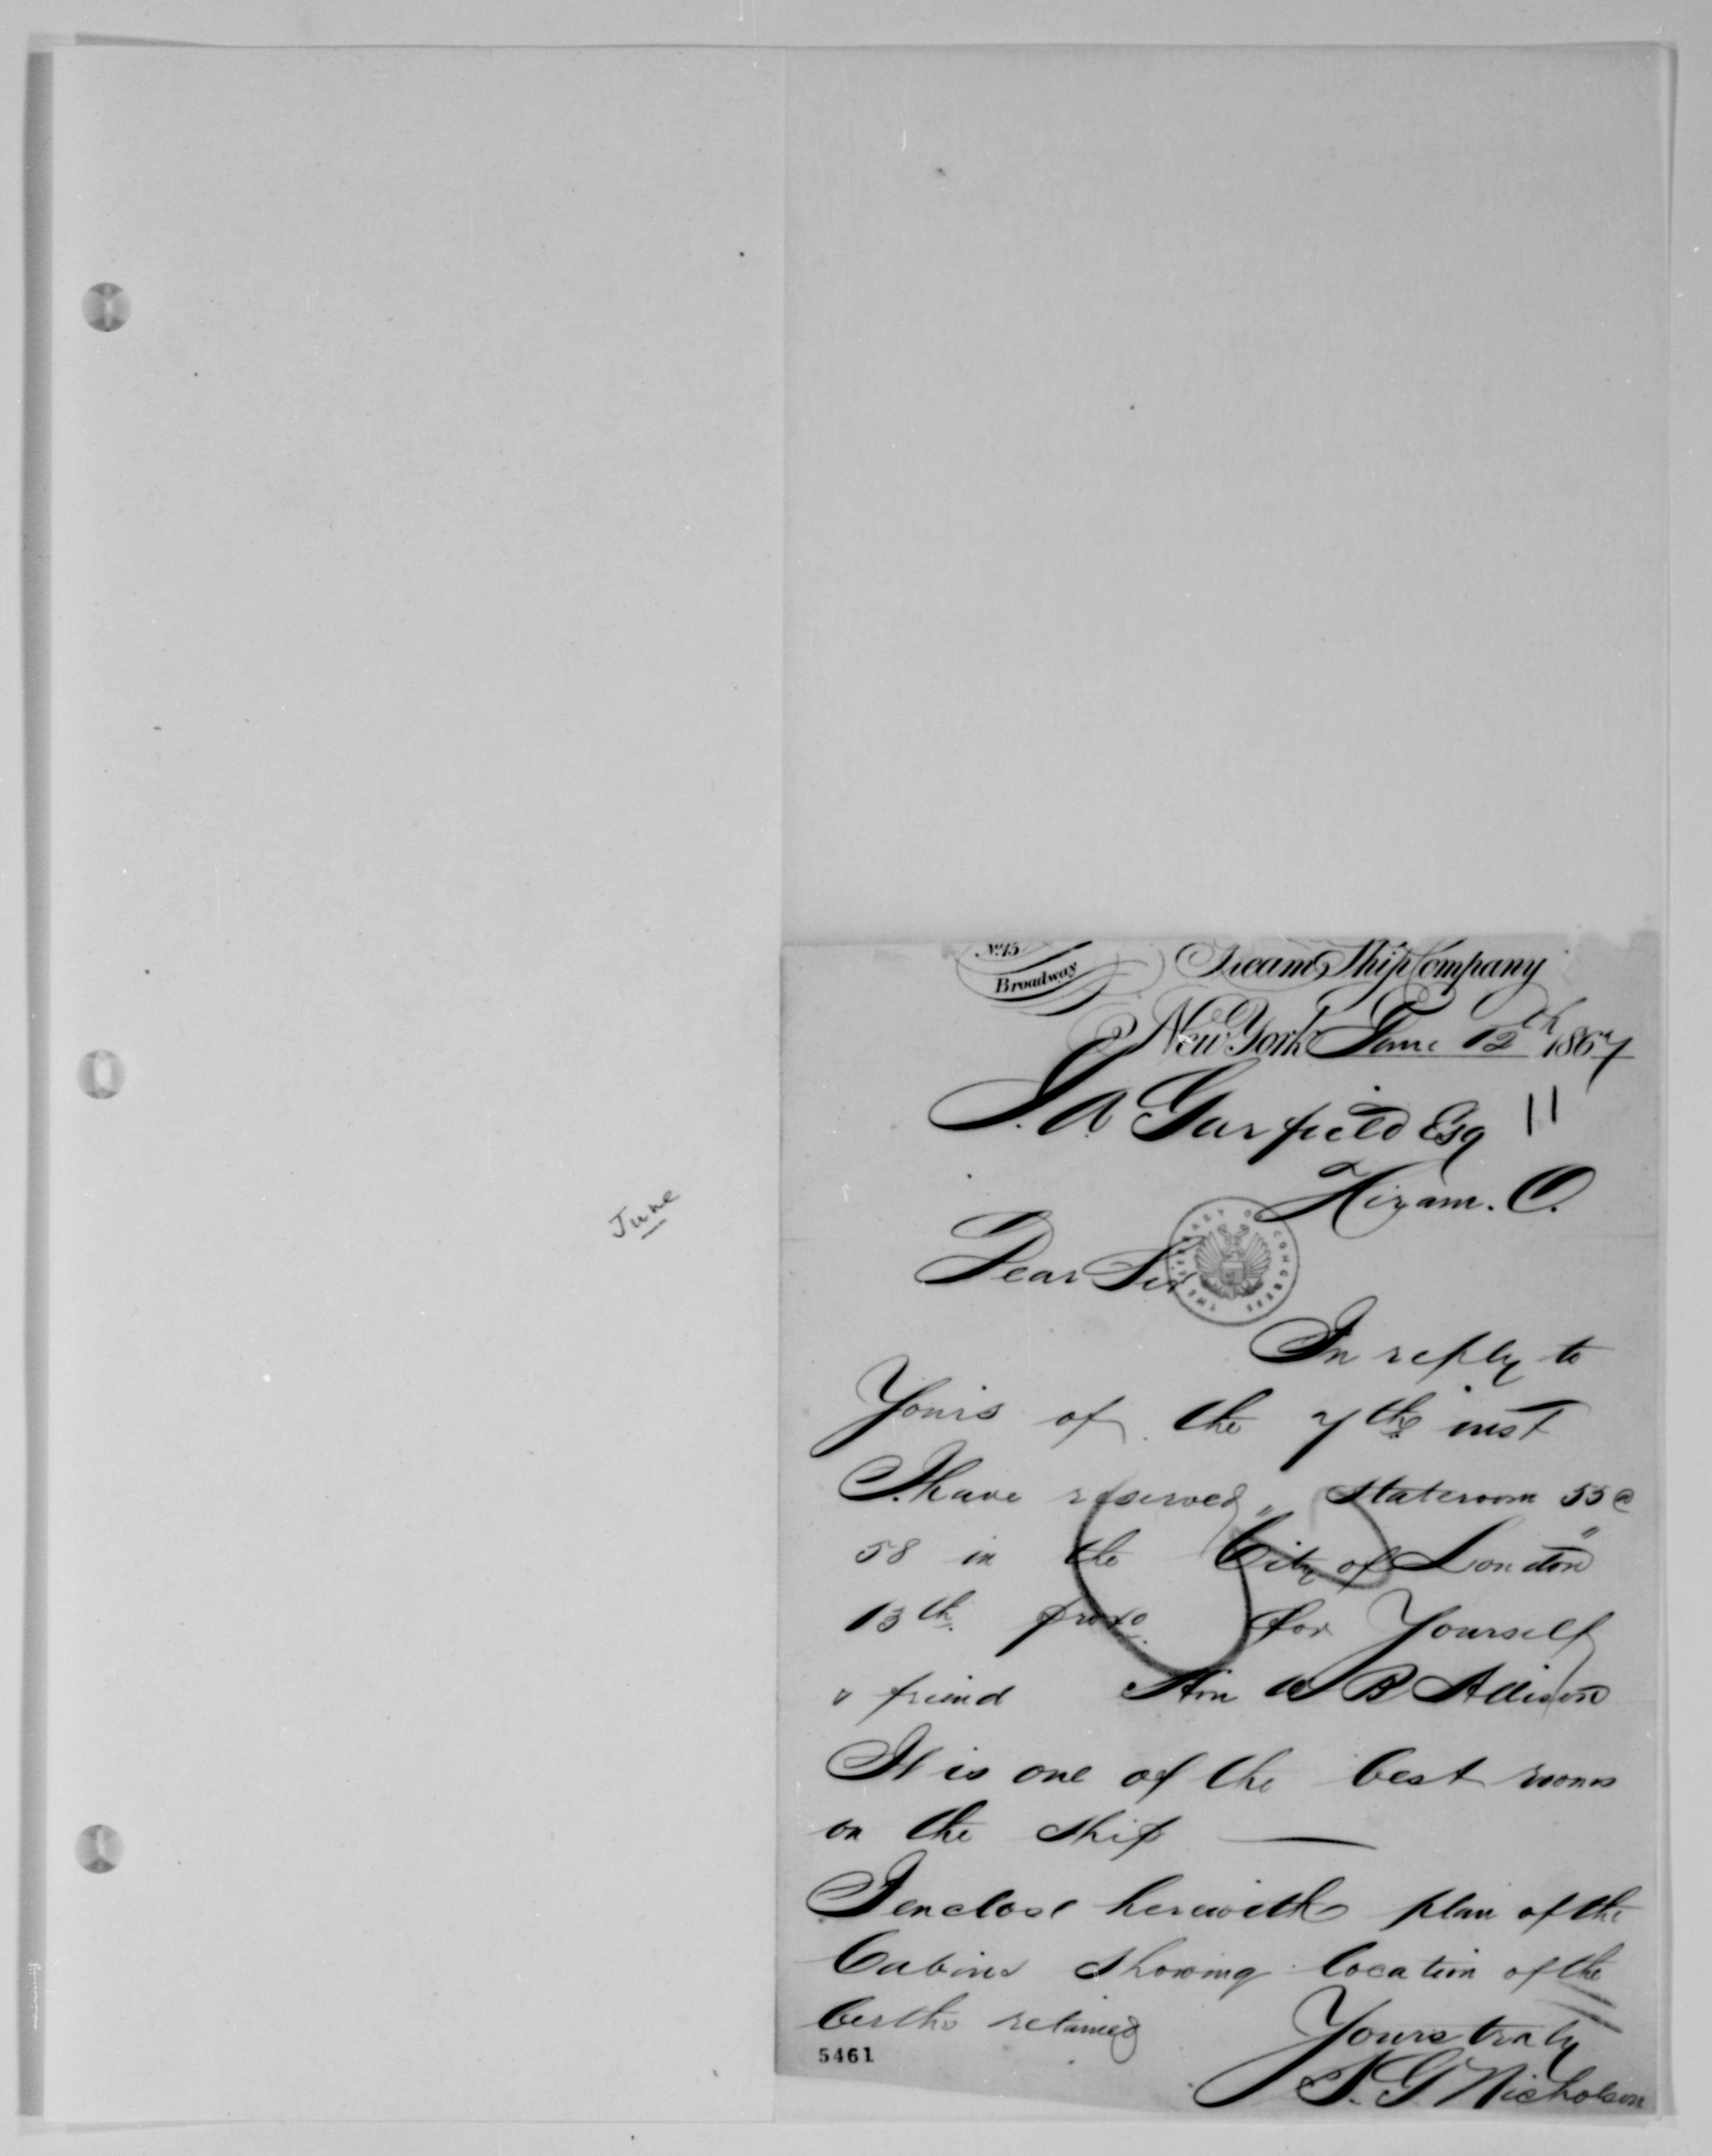 No. 15
Broadway
Steam Ship Company
New York June 12th 1867
J. A Garfield Esq 11
Hiram. O.
Dear Sir
THE LIBRARY OF CONGRESS
In reply to
Yours of the 7th inst
I have reserved Stateroom 55 @
58 in the "City of London"
13th proxo. for Yourself
& friend Hon W B Allison
It is one of the best rooms
on the ship —
I enclose herewith plan of the
Cabins showing location of the
berths retained
Yours truly
5461
J. G Nicholson
June